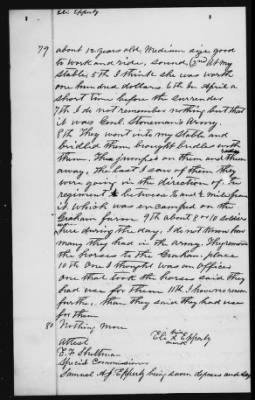 Eli Epperly
79 about 12 years old, Medium size good
to work and ride, sound (2nd at my
stable, 5th I think she was worth
one hundred dollars. 6th In April a
short time before the surrender
7th I do not remember nothing but that
it was Genl. Stoneman's Army.
8th They went into my stable and
bridled them brought bridles with
them. Then jumped on them and
away. The last I saw of them they
were going in the direction of the
regiment
it which was encamped on the
Graham farm 9th about 8 or 10 soldiers
here during the day, I do not know how
many they had in the army. They
the horses to the Graham place
10th One I thought was an Officer
one that took the horses said they
had use for them 11th I know no reason
further than they said they had use
for them
80 Nothing more
Eli his X mark Epperly
Attest
E. F.
Special Commissioner
Samuel A J Epperly being sworn deposes and says